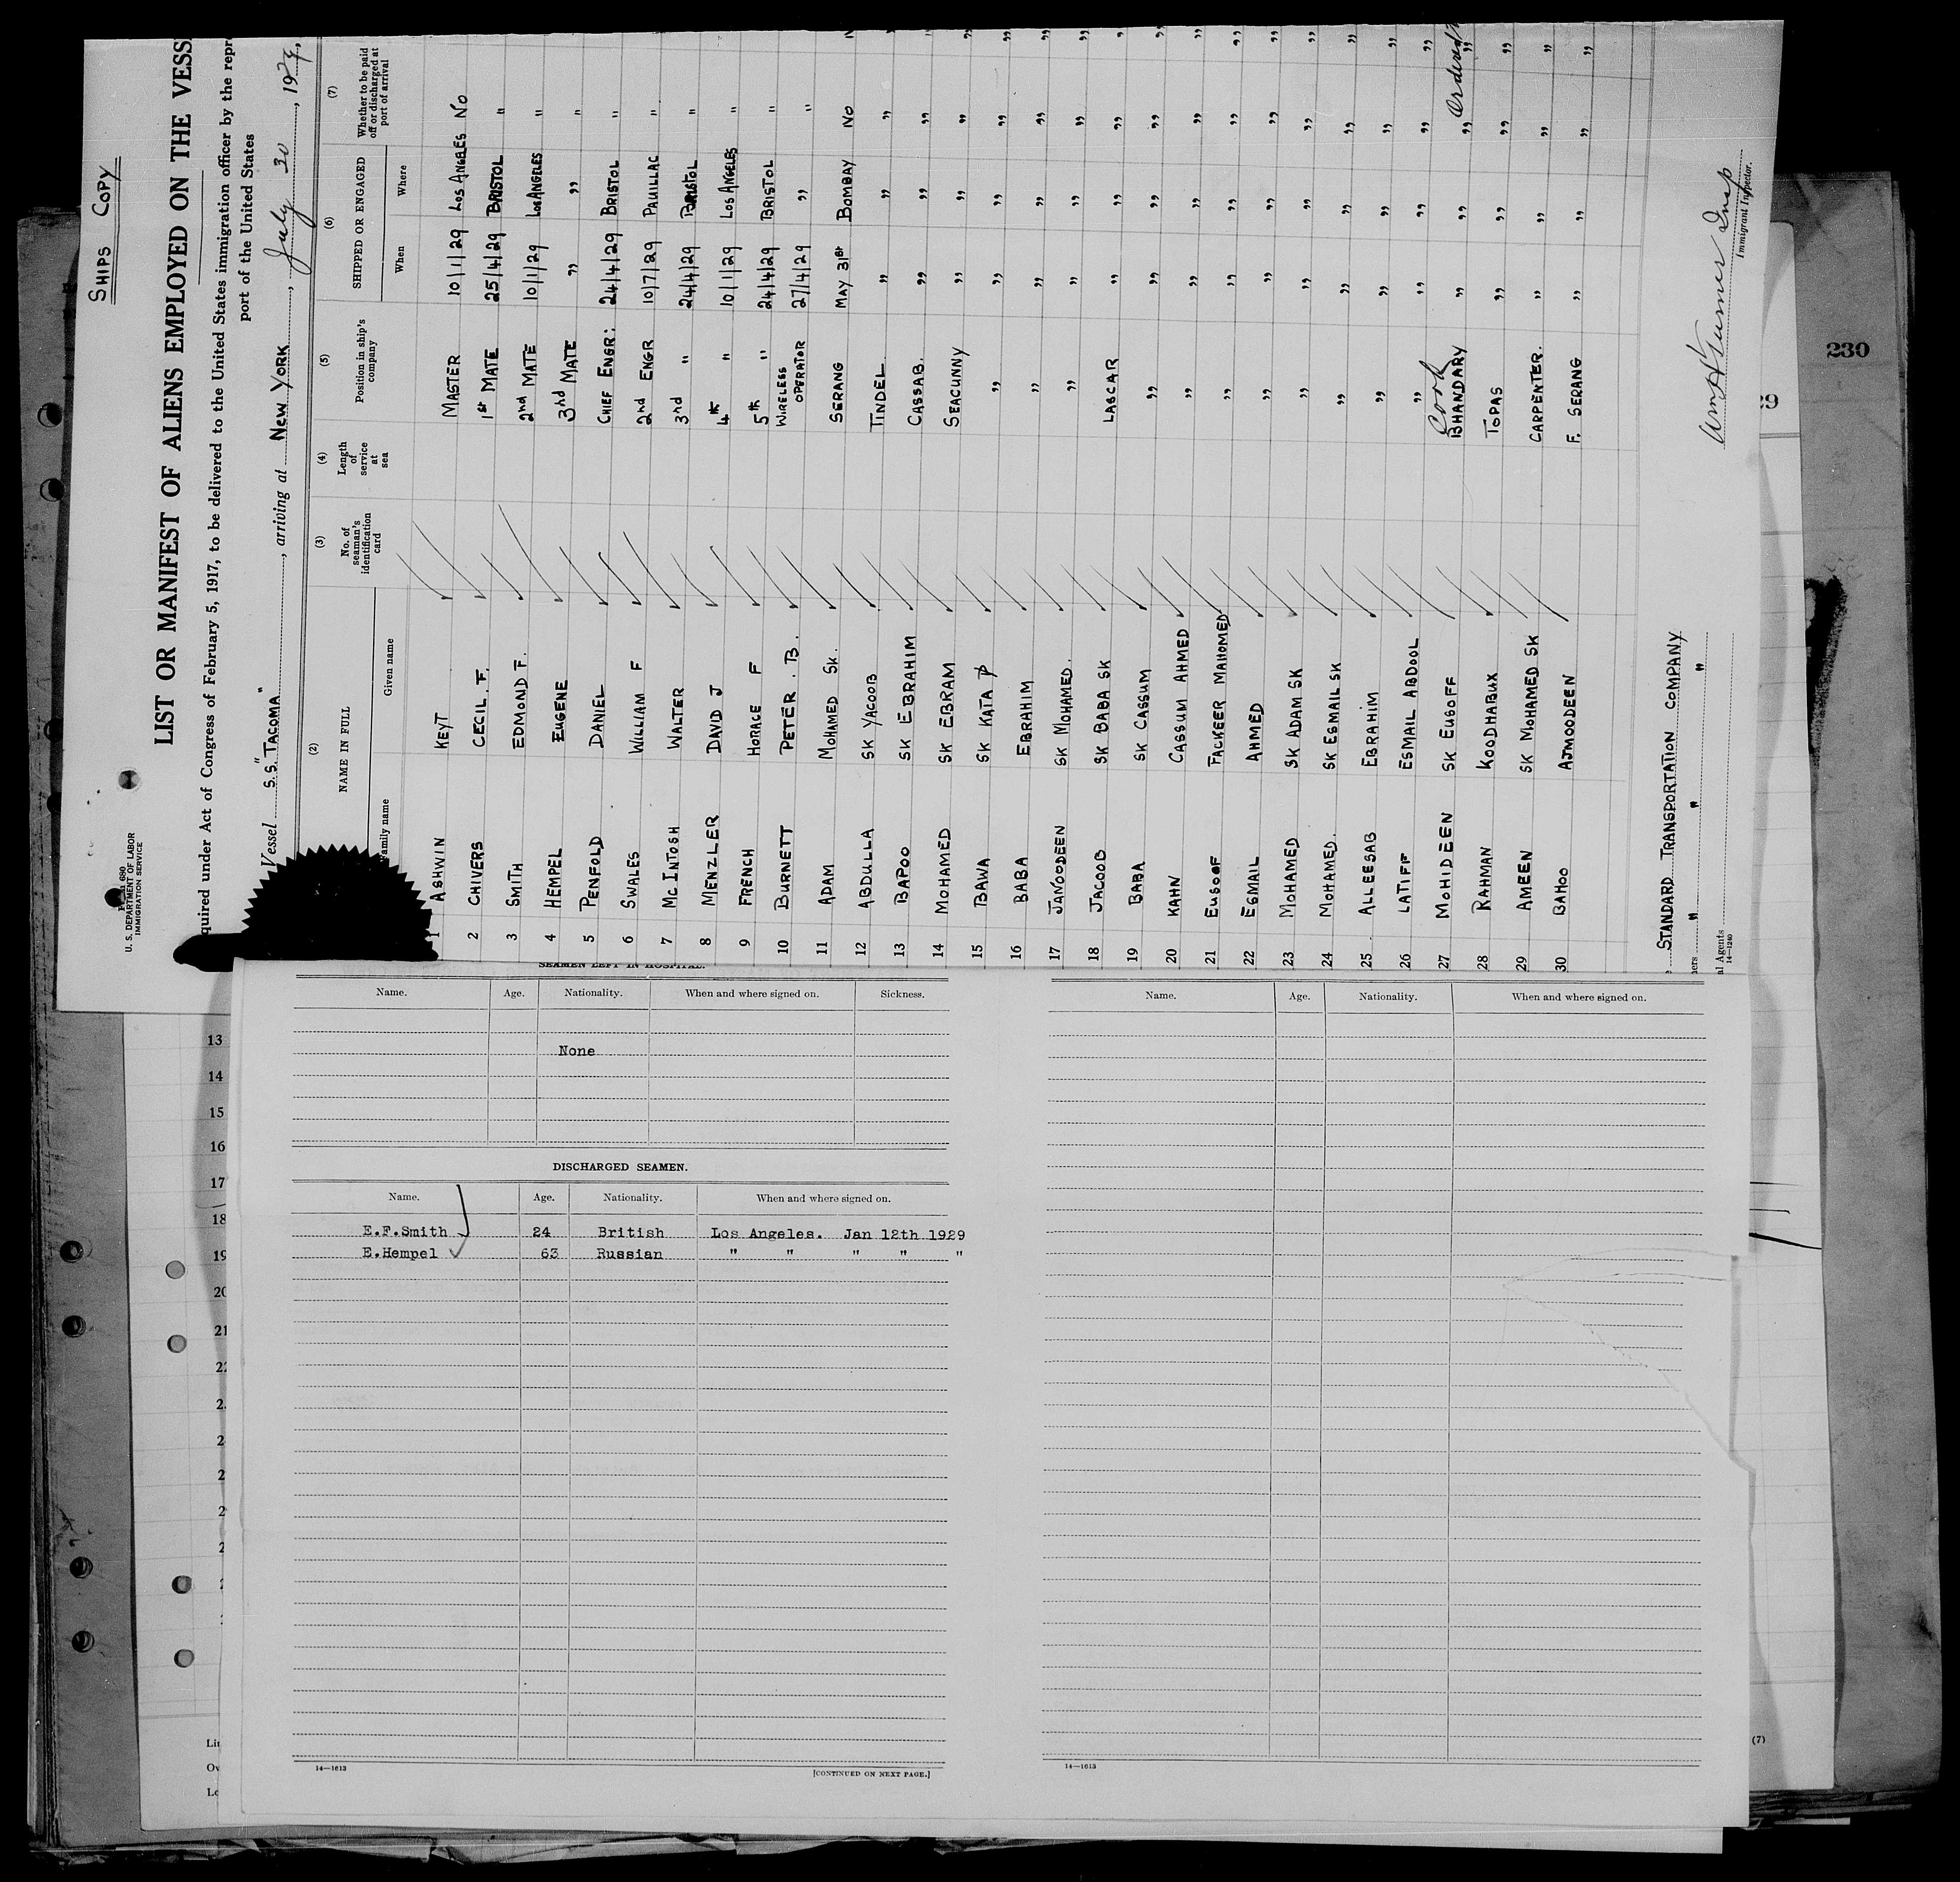 SHIPS COPY
U. S. DEPARTMENT OF LABOR
IMMIGRATION SERVICE
LIST OR MANIFEST OF ALIENS EMPLOYED ON THE VESS
quired under Act of Congress of February 5, 1917, to be delivered to the United States immigration officer by the repr
port of the United States
Vessel S.S. "TACOMA", arriving at NEW YORK, July 30, 192
(2) (3) (4) (5) (6) (7)
NAME IN FULL No. of seaman's identification card Length of service at sea Position in ship's company SHIPPED OR ENGAGED Whether to be paid off or discharged at port of arrival
Family name Given name When Where
1 ASHWIN KEYT MASTER 10/1/29 LOS ANGELES NO
2 CHIVERS CECIL. F. 1st MATE 25/4/29 BRISTOL "
3 SMITH EDMOND F. 2nd MATE 10/1/29 LOS ANGELES "
4 HEMPEL EUGENE 3nd MATE " " "
5 PENFOLD DANIEL CHIEF ENGR: 24/4/29 BRISTOL "
6 SWALES WILLIAM F 2nd ENGR 10/7/29 PAUILLAC "
7 McINTOSH WALTER 3nd " 24/4/29 BRISTOL "
8 MENZLER DAVID J 4th " 10/1/29 LOS ANGELES "
9 FRENCH HORACE F 5th " 24/4/29 BRISTOL "
10 BURNETT PETER. B. WIRELESS OPERATOR 27/4/29 " "
11 ADAM MOHAMED SK. SERANG MAY 31st BOMBAY NO
12 ABDULLA SK YACOOB TINDEL " " "
13 BAPOO SK EBRAHIM CASSAB. " " "
14 MOHAMED SK EBRAM SEACUNNY " " "
15 BAWA SK KATA " " " "
16 BABA EBRAHIM " " " "
17 JANOODEEN SK MOHAMED. " " " "
18 JACOOB SK BABA SK LASCAR " " "
19 BABA SK CASSUM " " " "
20 KAHN CASSUM AHMED " " " "
21 EUSOOF FACKEER MAHOMED " " " "
22 ESMAIL AHMED " " " "
23 MOHAMED SK ADAM SK " " " "
24 MOHAMED. SK ESMAIL SK " " " "
25 ALLEESAB EBRAHIM " " " "
26 LATIFF ESMAIL ABDOOL " " " "
27 MOHIDEEN SK EUSOFF Cook BHANDARY " " " Ordered
28 RAHMAN KOODHABUX TOPAS " " "
29 AMEEN SK MOHAMED SK CARPENTER. " " "
30 BAHOO AJMOODEEN F. SERANG " " "
STANDARD TRANSPORTATION COMPANY
ners " " "
al Agents
14—1240
Insp
Immigrant Inspector.
230
SEAMEN LEFT IN HOSPITAL.
Name. Age. Nationality. When and where signed on. Sickness.
None
DISCHARGED SEAMEN.
Name. Age. Nationality. When and where signed on.
E.F.Smith 24 British Los Angeles. Jan 12th 1929
E.Hempel 63 Russian " " " " "
14—1613 [CONTINUED ON NEXT PAGE.]
Name. Age. Nationality. When and where signed on.
14—1613
13
14
15
16
17
18
19
20
21
(7)